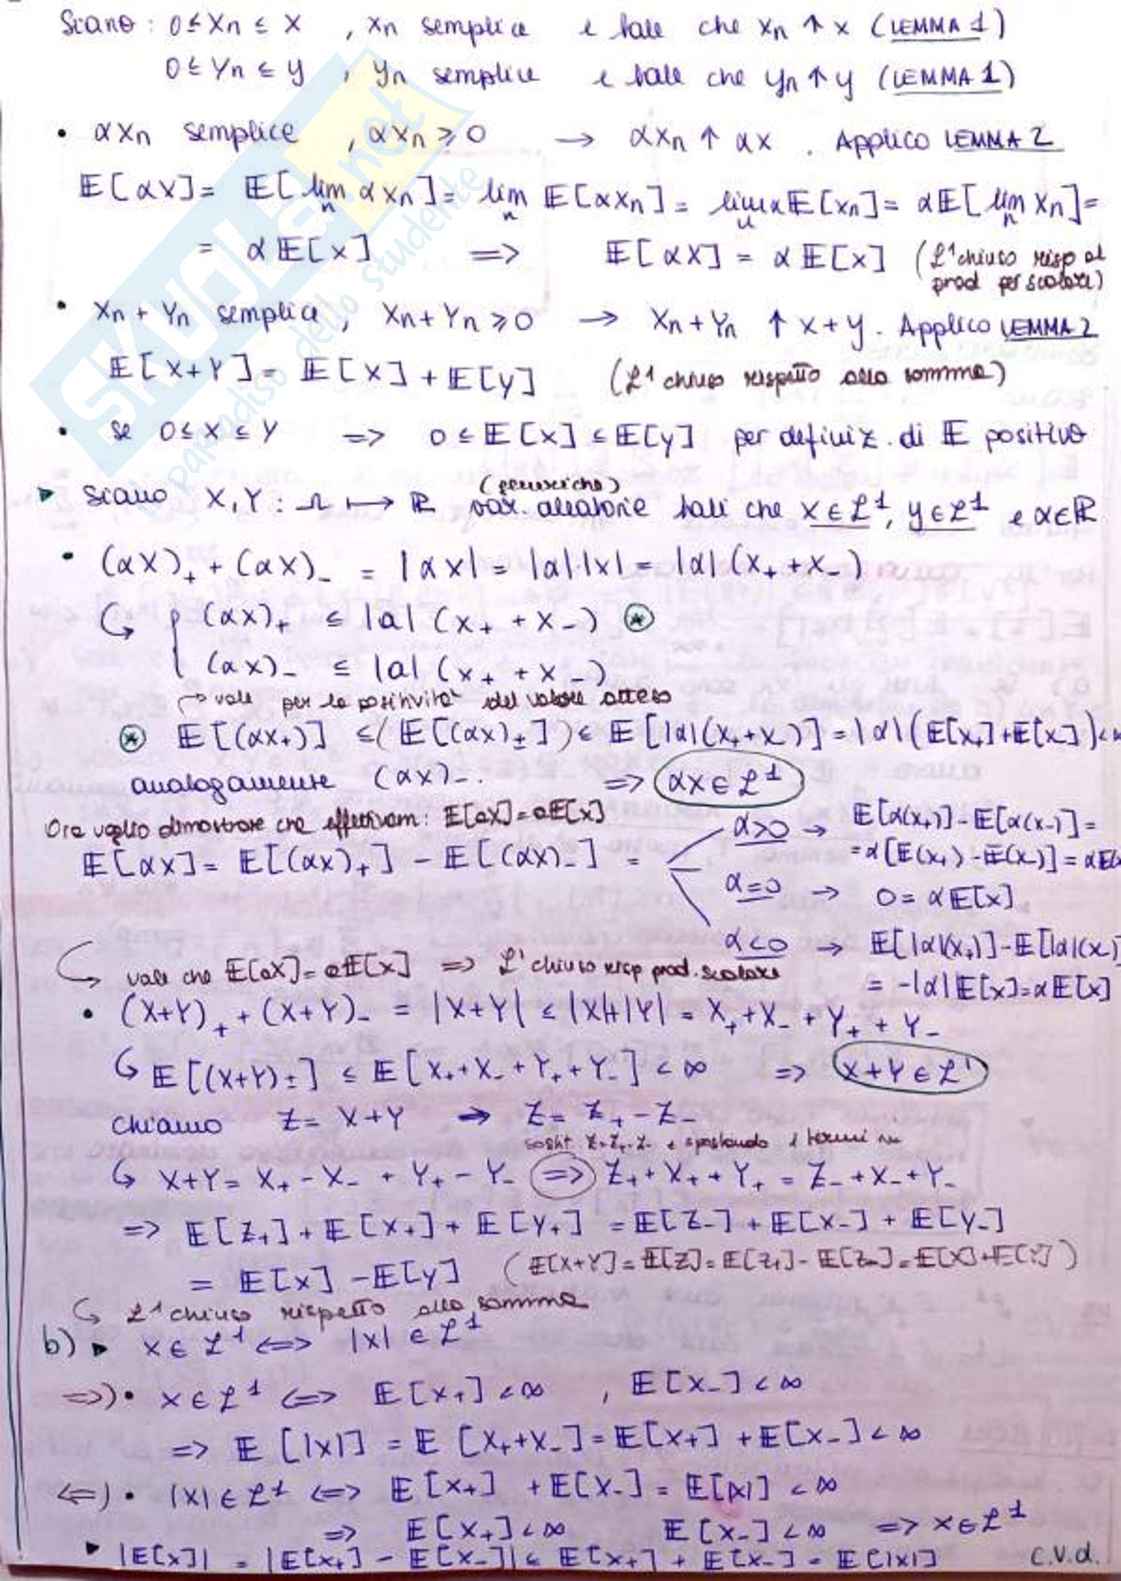 Siano : 0 ≤ Xn ≤ X , Xn semplice e tale che Xn ↑ X (LEMMA 1)
0 ≤ Yn ≤ Y , Yn semplice e tale che Yn ↑ Y (LEMMA 1)
• αXn semplice , αXn ≥ 0 → αXn ↑ αX . Applico LEMMA 2
E[αX] = E[lim_n αXn] = lim_n E[αXn] = lim_n αE[Xn] = αE[lim_n Xn] =
= αE[X] => E[αX] = αE[X] (L¹ chiuso risp al
prod per scalare)
• Xn + Yn semplice, Xn + Yn ≥ 0 → Xn + Yn ↑ X + Y . Applico LEMMA 2
E[X+Y] = E[X] + E[Y] (L¹ chiuso rispetto alla somma)
• se 0 ≤ X ≤ Y => 0 ≤ E[X] ≤ E[Y] per definiz. di E positivo
(generiche)
▶ Siano X, Y : Ω ↦ R var. aleatorie tali che X ∈ L¹, Y ∈ L¹ e α ∈ R
• (αX)₊ + (αX)₋ = |αX| = |α||X| = |α|(X₊ + X₋)
↪ { (αX)₊ ≤ |α| (X₊ + X₋) ⊛
(αX)₋ ≤ |α| (X₊ + X₋)
→ vale per la positività del valore atteso
⊛ E[(αX₊)] ≤ (E[(αX)±]) ≤ E[|α|(X₊+X₋)] = |α|(E[X₊]+E[X₋]) < ∞
analogamente (αX)₋. => αX ∈ L¹
Ora voglio dimostrare che effettivam: E[αX] = αE[X]
α>0 → E[α(X₊)] - E[α(X₋)] =
E[αX] = E[(αX)₊] - E[(αX)₋] =
= α[E(X₊) - E(X₋)] = αE(
α=0 → 0 = αE[X]
α<0 → E[|α|(X₊)] - E[|α|(X₋)]
↪ vale che E[αX] = αE[X] => L¹ chiuso risp prod. scalare
= -|α|E[X] = αE[X]
• (X+Y)₊ + (X+Y)₋ = |X+Y| ≤ |X|+|Y| = X₊+X₋ + Y₊ + Y₋
↪ E[(X+Y)±] ≤ E[X₊+X₋+Y₊+Y₋] < ∞ => X+Y ∈ L¹
chiamo Z = X+Y → Z = Z₊ - Z₋
sostit. Z=Z₊-Z₋ e spostando i termini
↪ X+Y = X₊ - X₋ + Y₊ - Y₋ => Z₊ + X₊ + Y₊ = Z₋ + X₋ + Y₋
=> E[Z₊] + E[X₊] + E[Y₊] = E[Z₋] + E[X₋] + E[Y₋]
= E[X] - E[Y] (E[X+Y] = E[Z] = E[Z₊] - E[Z₋] = E[X] + E[Y])
↪ L¹ chiuso rispetto alla somma
b) ▶ X ∈ L¹ <=> |X| ∈ L¹
=>) • X ∈ L¹ <=> E[X₊] < ∞ , E[X₋] < ∞
=> E[|X|] = E[X₊+X₋] = E[X₊] + E[X₋] < ∞
<=) • |X| ∈ L¹ <=> E[X₊] + E[X₋] = E[|X|] < ∞
=> E[X₊] < ∞ E[X₋] < ∞ => X ∈ L¹
▶ |E[X]| = |E[X₊] - E[X₋]| ≤ E[X₊] + E[X₋] = E[|X|] C.V.d.
SKUOLA.net
il paradiso dello studente